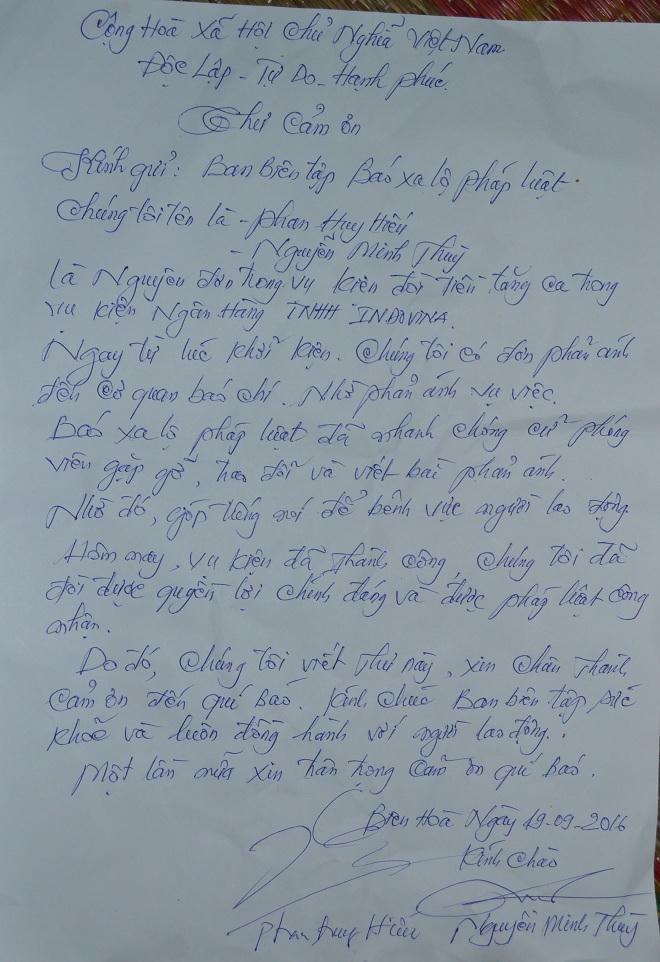 Cộng Hoà Xã Hội Chủ Nghĩa Việt Nam
Độc Lập - Tự Do - Hạnh phúc.
Thư Cảm ơn
Kính gửi: Ban Biên tập Báo xa lộ pháp luật.
Chúng tôi tên là - Phan Huy Hiếu
- Nguyễn Minh Thuỳ
là Nguyên đơn trong vụ kiện đòi tiền tăng ca trong
vụ kiện Ngân Hàng TNHH INDOVINA.
Ngay từ lúc khởi kiện. Chúng tôi có đơn phản ánh
đến cơ quan báo chí. Nhờ phản ánh vụ việc.
Báo xa lộ pháp luật đã nhanh chóng cử phóng
viên gặp gỡ, trao đổi và viết bài phản ánh.
Nhờ đó, góp tiếng nói để bênh vực người lao động.
Hôm nay, vụ kiện đã thành công, chúng tôi đã
đòi được quyền lợi chính đáng và được pháp luật công
nhận.
Do đó, chúng tôi viết thư này, xin chân thành
cảm ơn đến quí báo. Kính chúc Ban biên tập sức
khoẻ và luôn đồng hành với người lao động.
Một lần nữa xin trân trọng cảm ơn quí báo.
Biên Hoà Ngày 19-09-2016
Kính chào
Phan Huy Hiếu Nguyễn Minh Thuỳ